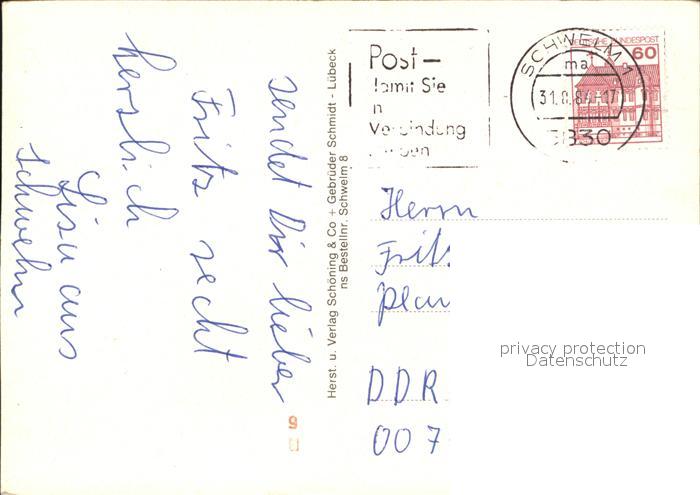 sendet Dir lieber
Fritz recht
herzlich
Lisa aus
Schwelm
Herst. u. Verlag Schöning & Co + Gebrüder Schmidt - Lübeck
ns Bestellnr. Schwelm 8
Post –
damit Sie
in
Verbindung
SCHWELM 1
ma
31.8.87-17
5830
DEUTSCHE BUNDESPOST
60
Herrn
Frit
DDR
007
privacy protection
Datenschutz